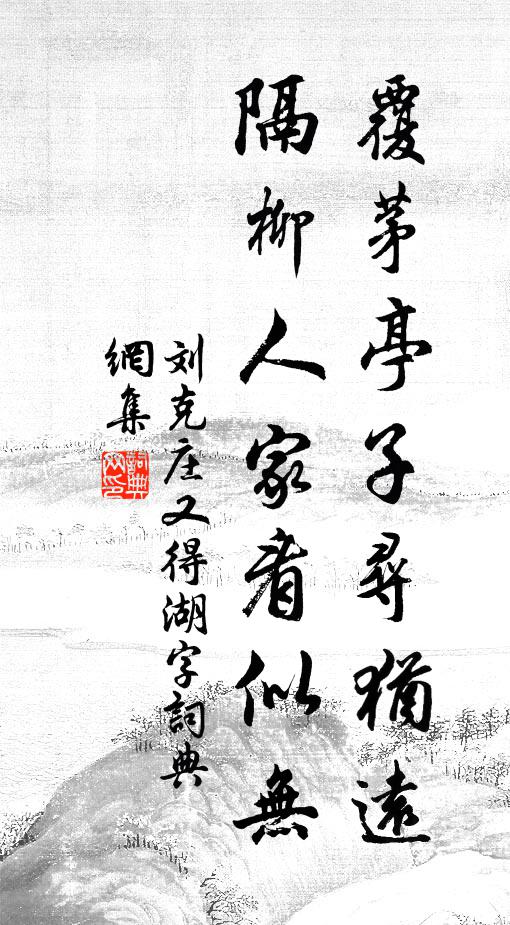 覆茅亭子尋猶遠
隔柳人家看似無
刘克庄又得湖字詞典
網集
詞典